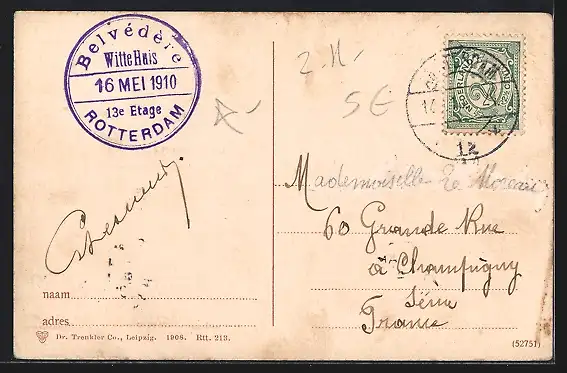 Belvédère
Witte Huis
16 MEI 1910
13e Etage
ROTTERDAM
2-11-
5€
12
Mademoiselle
60 Grande Rue
à Champigny
Seine
France
naam
adres
Dr. Trenkler Co., Leipzig. 1908. Rtt. 213.
(52751)